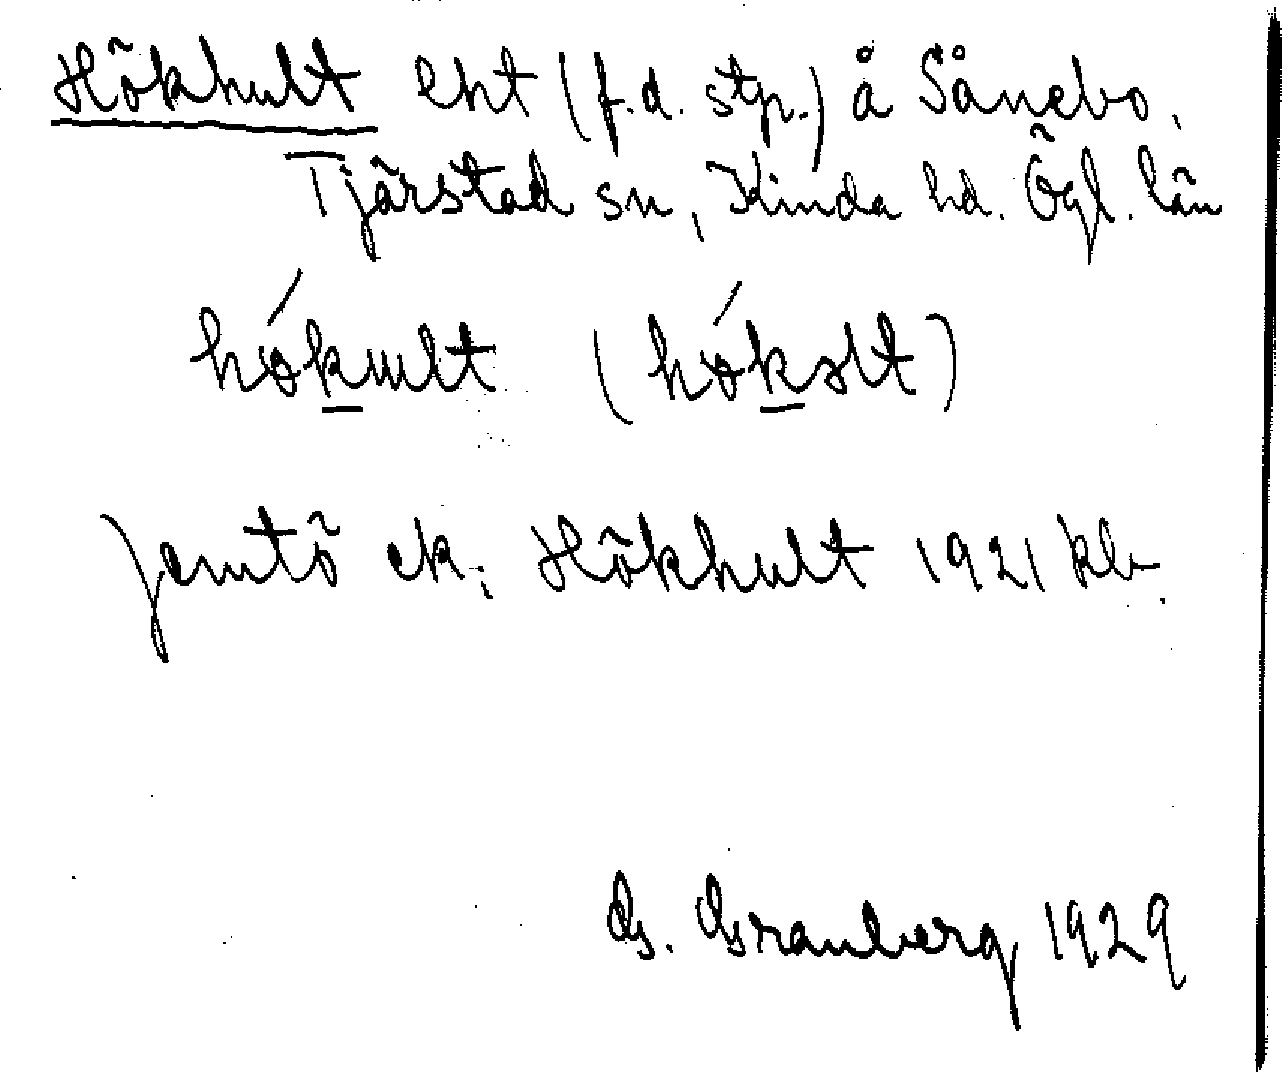 Hökhult lht (f.d. stp.) å Sånebo,
Tjärstad sn, Kinda hd. Ögl. län
hókult (hókolt)
jemtö ek; Hökhult 1921 kb
G. Granberg 1929